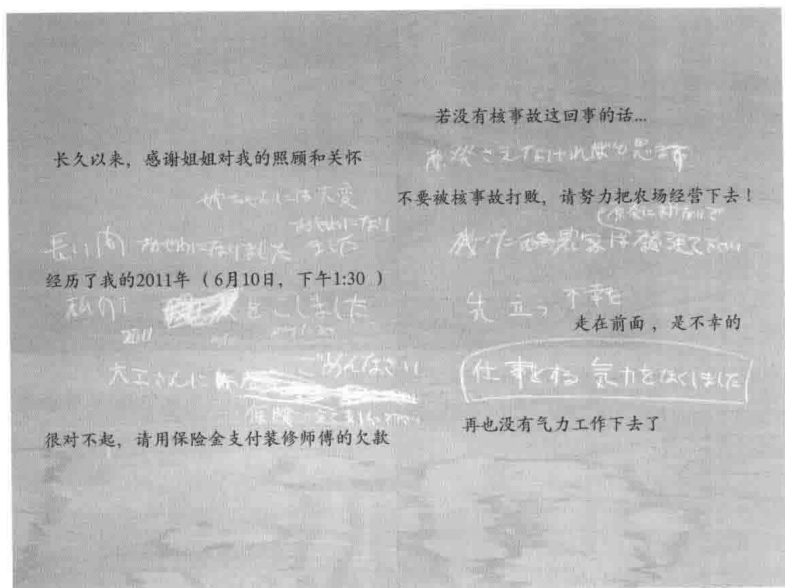 长久以来，感谢姐姐对我的照顾和关怀
姉ちゃんには大変
おせわになり
長い間 おせわになりました ました
经历了我的2011年（6月10日，下午1:30）
2011
大工さんに ごめんなさい
很对不起，请用保险金支付装修师傅的欠款
若没有核事故这回事的话...
原発さえなければと思ます
不要被核事故打败，请努力把农场经营下去！
原発に
残った酪農家は
先立つ不幸を
走在前面，是不幸的
仕事をする気力をなくしました
再也没有气力工作下去了